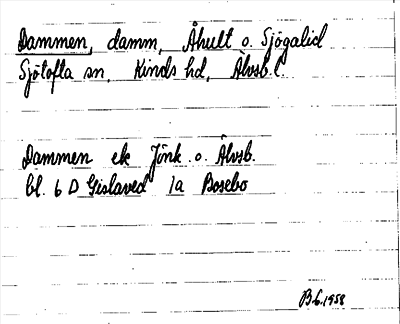 Dammen, damm, Åhult o. Sjögalid
Sjötofta sn, Kinds hd, Älvsb. l.
Dammen ek Jönk. o. Älvsb.
bl. 6 D Gislaved 1a Bosebo
B.G. 1958